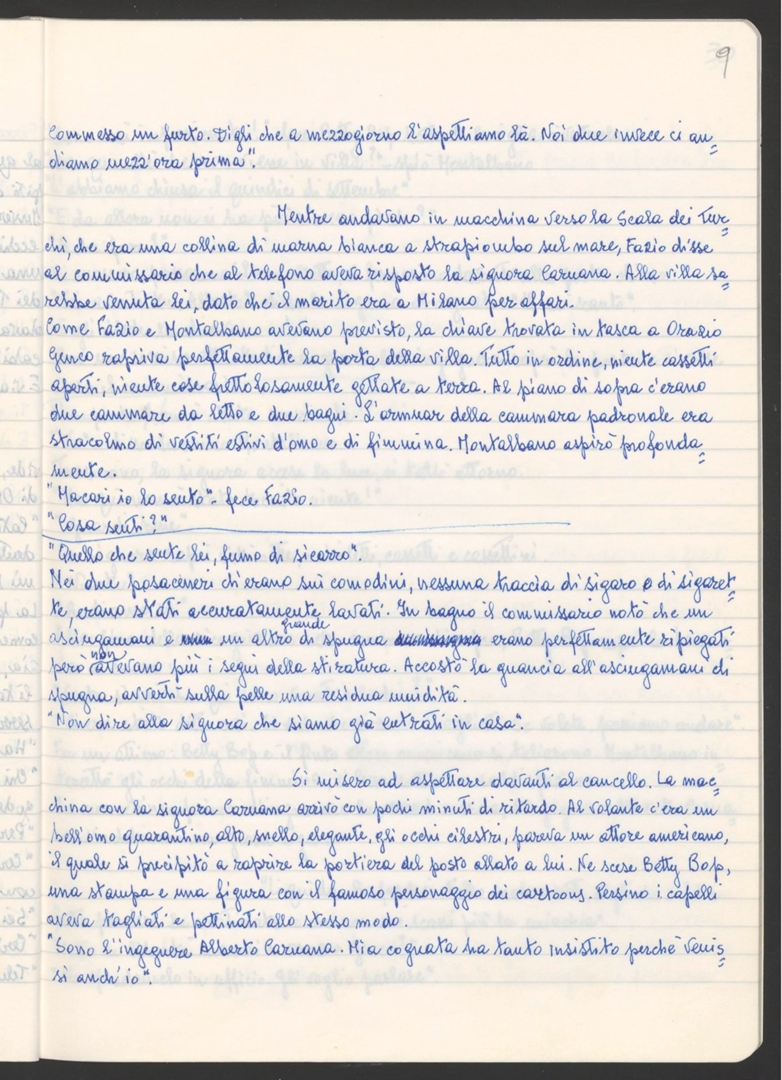 9
commesso un furto. Digli che a mezzogiorno l'aspettiamo là. Noi due invece ci an=
diamo mezz'ora prima".
Mentre andavano in macchina verso la Scala dei Tur=
chi, che era una collina di marna bianca a strapiombo sul mare, Fazio disse
al commissario che al telefono aveva risposto la signora Caruana. Alla villa sa=
rebbe venuta lei, dato che il marito era a Milano per affari.
Come Fazio e Montalbano avevano previsto, la chiave trovata in tasca a Orazio
Genco rapriva perfettamente la porta della villa. Tutto in ordine, niente cassetti
aperti, niente cose frettolosamente gettate a terra. Al piano di sopra c'erano
due cammare da letto e due bagni. L'armuar della cammara padronale era
stracolmo di vestiti estivi d'omo e di fimmina. Montalbano aspirò profonda=
mente.
"Macari io lo sento"- fece Fazio.
"Cosa senti?"
"Quello che sente lei, fumo di sicarro".
Nei due posaceneri ch'erano sui comodini, nessuna traccia di sigaro o di sigaret=
te, erano stati accuratamente lavati. In bagno il commissario notò che un
asciugamani e un altro grande di spugna erano perfettamente ripiegati
però non avevano più i segni della stiratura. Accostò la guancia all'asciugamani di
spugna, avvertì sulla pelle una residua umidità.
"Non dire alla signora che siamo già entrati in casa".
Si misero ad aspettare davanti al cancello. La mac=
china con la signora Caruana arrivò con pochi minuti di ritardo. Al volante c'era un
bell'omo quarantino, alto, snello, elegante, gli occhi cilestri, pareva un attore americano,
il quale si precipitò a raprire la portiera del posto allato a lui. Ne scese Betty Bop,
una stampa e una figura con il famoso personaggio dei cartoons. Persino i capelli
aveva tagliati e pettinati allo stesso modo.
"Sono l'ingegnere Alberto Caruana. Mia cognata ha tanto insistito perchè venis=
si anch'io".